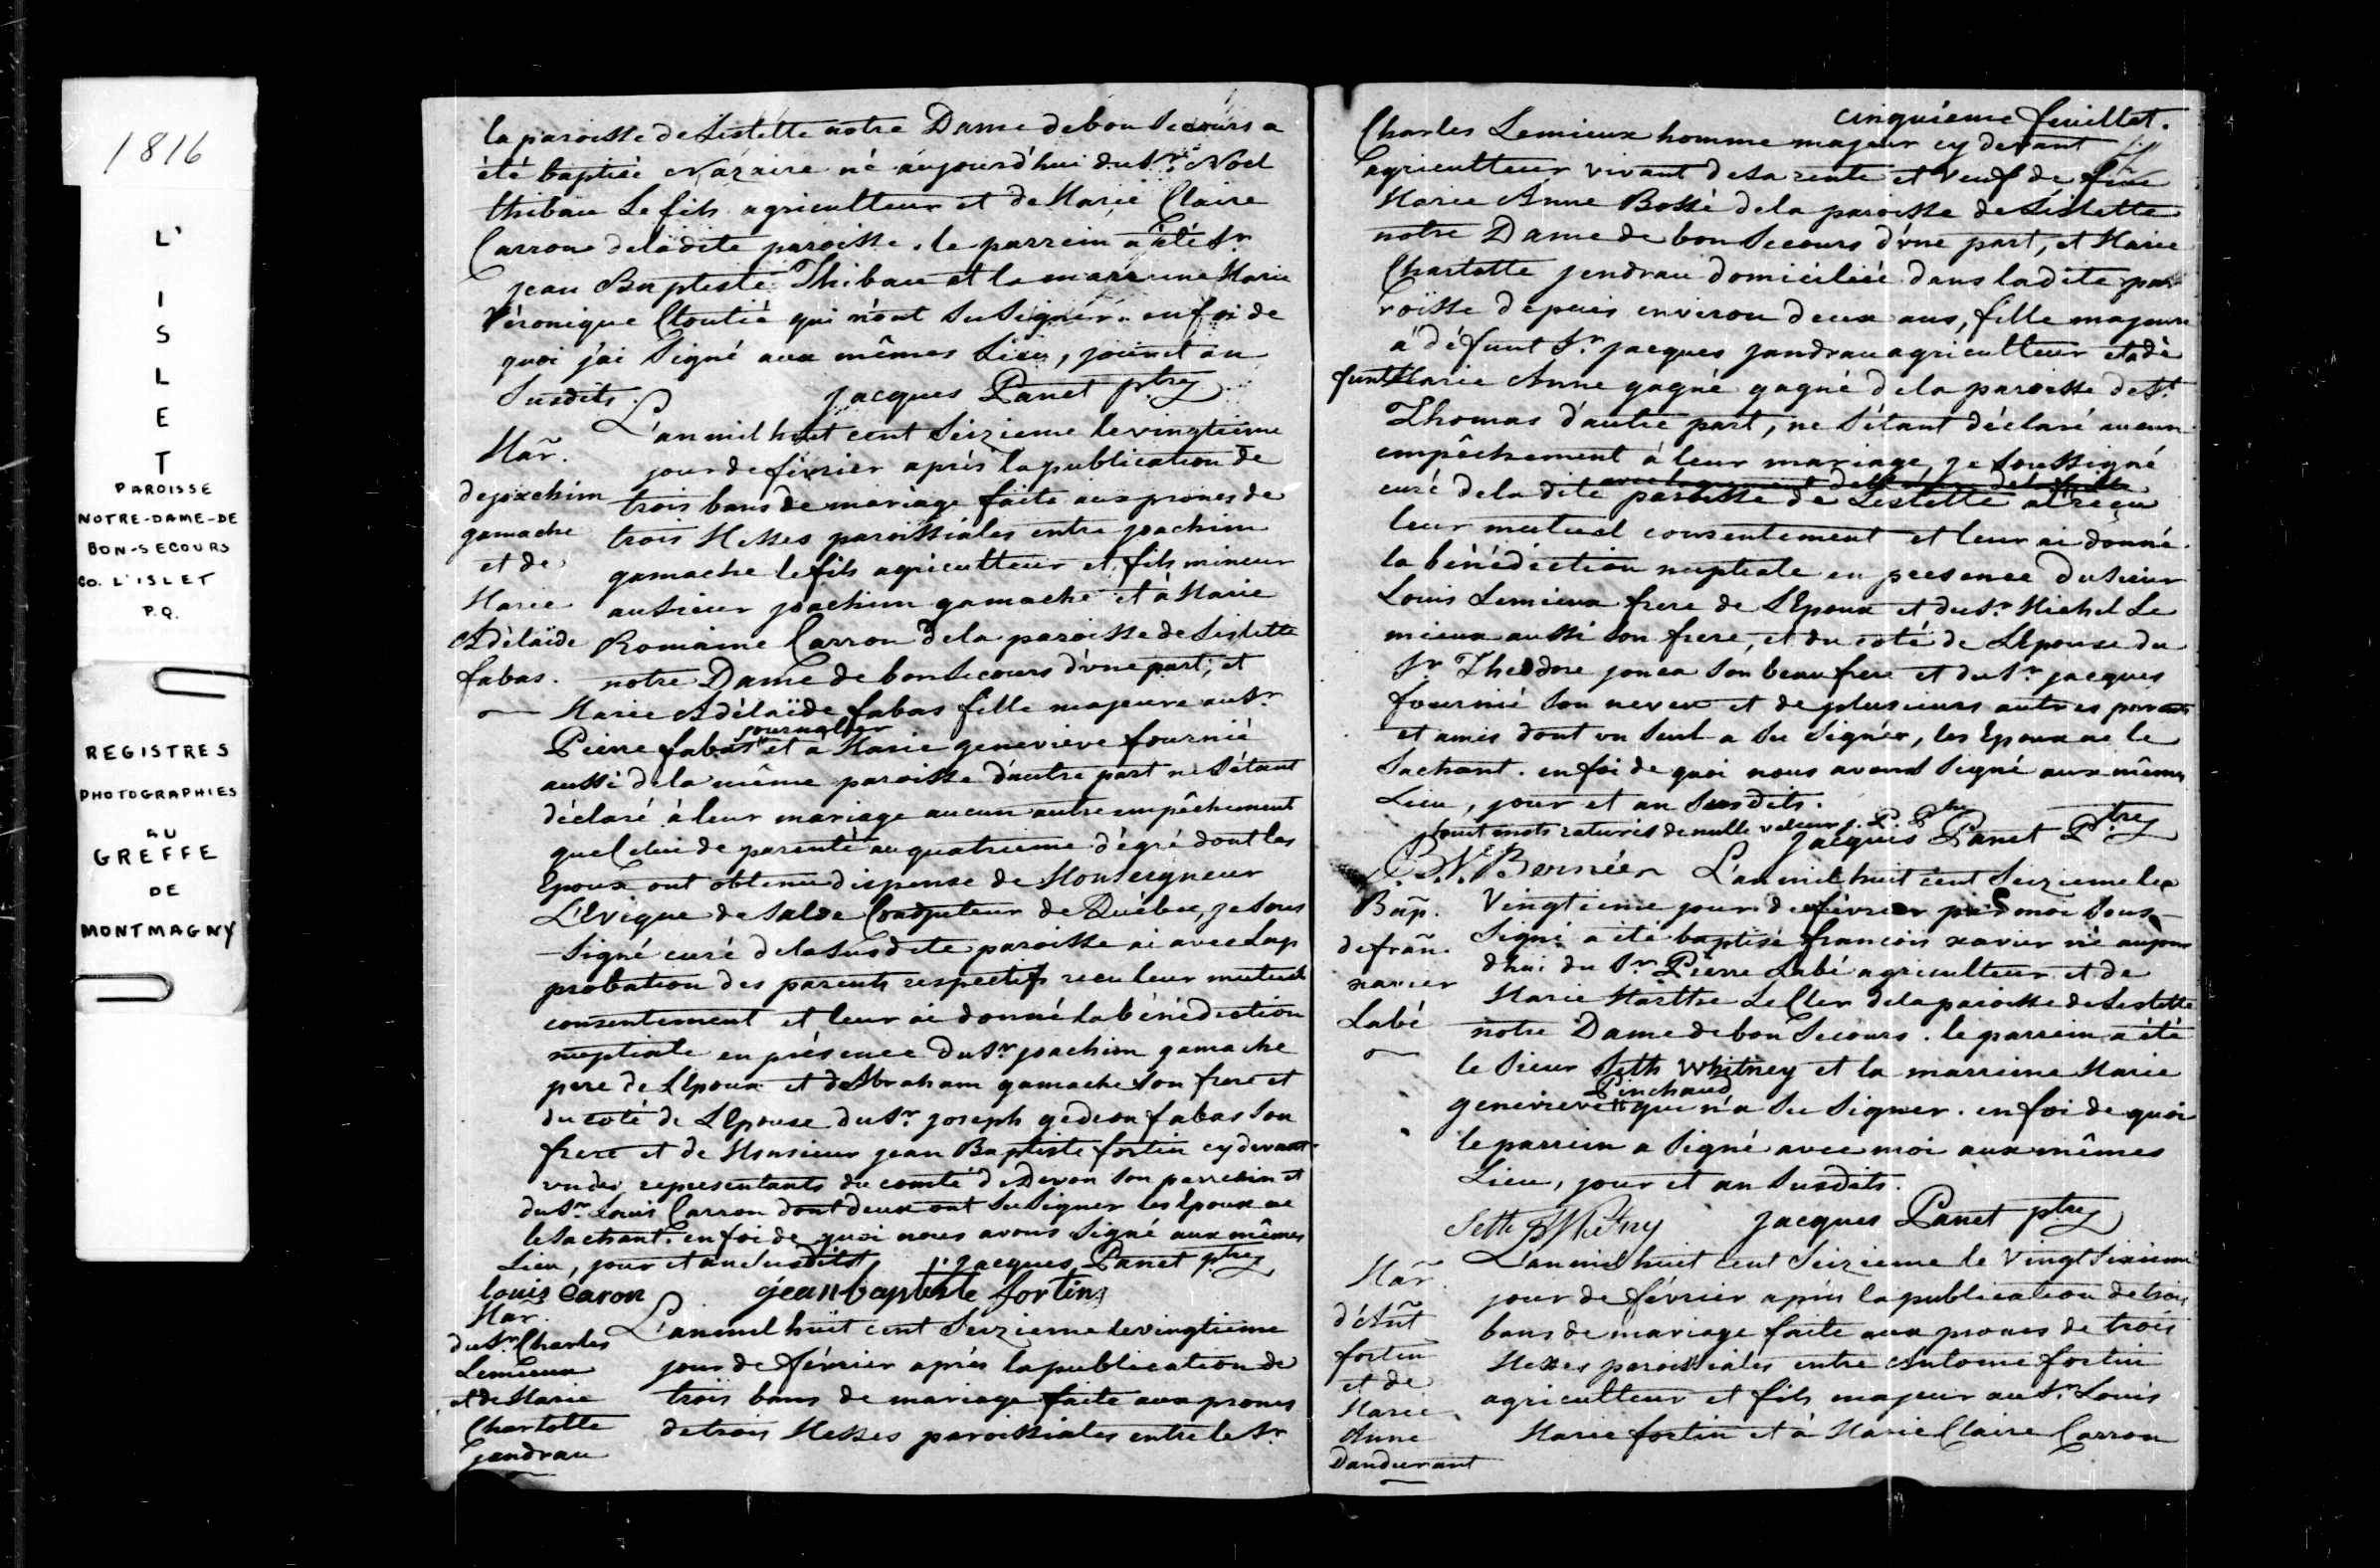 1816
L'
I
S
L
E
T
PAROISSE
NOTRE-DAME-DE
BON-SECOURS
CO. L'ISLET
P.Q.
REGISTRES
PHOTOGRAPHIES
AU
GREFFE
DE
MONTMAGNY
la paroisse de Lislette notre Dame de bon Secours a
été baptisé Nazaire né aujourd'hui du Sr. Noel
thibau Le fils agriculteur et de Marie Claire
Carron de la dite paroisse. le parrein a été Sr
jean Baptiste Thibau et la marreine Marie
Véronique Cloutié qui n'ont Su Signer. en foi de
quoi j'ai Signé aux mêmes Lieu, jour et an
Susdits. Jacques Panet ptre
Mar.
de joachim
gamache
et de
Marie
Adélaïde
fabas.
L'an mil huit cent Seizieme le vingtieme
jour de février après la publication de
trois bans de mariage faite aux prones de
trois Messes paroissiales entre joachim
gamache le fils agriculteur et fils mineur
au Sieur joachim gamache et à Marie
Romaine Carron de la paroisse de Lislette
notre Dame de bon Secours d'une part, et
Marie Adélaïde fabas fille majeure au Sr.
journallier
Pierre fabas et à Marie genevieve fournié
aussi de la même paroisse d'autre part ne S'étant
déclaré à leur mariage aucun autre empêchement
que Celui de parenté au quatrieme dégré dont les
Epoux ont obtenu dispense de Monseigneur
L'Evêque de Salde Coadjuteur de Québec, je Sous
-Signé curé de la Susdite paroisse ai avec Lap
probation des parents respectifs recu leur mutuel
consentement et leur ai donné la bénédiction
nuptiale en présence du Sr. joachim gamache
pere de L'Epoux et d'Abraham gamache Son frere et
du coté de L'Epouse du Sr. joseph gedeon fabas Son
frere et de Monsieur jean Baptiste fortin cy devant
un des representants du comté de Devon Son parrein et
du Sr. Louis Carron dont deux ont Su Signer les Epoux ne
le Sachant. en foi de quoi nous avons Signé aux mêmes
Lieu, jour et an Susdits. Jacques Panet ptre
louis Caron jean baptiste fortin
Mar.
du Sr. Charles
Lemieux
et de Marie
Charlotte
Jendrau
L'an mil huit cent Seizieme le vingtieme
jour de février après la publication de
trois bans de mariage faite aux prones
de trois Messes paroissiales entre le Sr.
cinquième feuillet.
Charles Lemieux homme majeur cy devant
agriculteur vivant de sa rente et veuf de feue
Marie Anne Bossé de la paroisse de Lislette
notre Dame de bon Secours d'une part, et Marie
Charlotte jendrau domiciliée dans la dite pa
roisse depuis environ deux ans, fille majeure
à défunt Sr. jacques jandrau agriculteur et à dé
funte Marie Anne gagné gagné de la paroisse de St.
Thomas d'autre part, ne S'étant déclaré aucun
empêchement à leur mariage, je Soussigné
curé de la dite paroisse de Lislette ai reçu
leur mutuel consentement et leur ai donné
la bénédiction nuptiale en presence du Sieur
Louis Lemieux frere de L'Epoux et du Sr. Michel Le
mieux aussi Son frere, et du coté de L'Epouse du
Sr Theodore jonca Son beau frere et du Sr. jacques
fournié Son neveu et de plusieurs autres parents
et amis dont un Seul a Su Signer, les Epoux ne le
Sachant. en foi de quoi nous avons Signé aux mêmes
Lieu, jour et an Susdits.
huit mots raturés de nulle valeur J. P. Ptre
Jacques Panet Ptre
Bap.
de fran.
xavier
Labé
L'an mil huit cent Seizieme le
Vingtieme jour de février par moi Sous
Signé a été baptisé francois xavier né aujour
dhui du Sr. Pierre Labé agriculteur et de
Marie Marthe Le Cler de la paroisse de Lislette
notre Dame de bon Secours. le parrein a été
le Sieur Seth Whitney et la marreine Marie
Pinchaud
genevieve qui n'a Su Signer. en foi de quoi
le parrein a Signé avec moi aux mêmes
Lieu, jour et an Susdits.
Seth Whitny Jacques Panet ptre
Mar.
d'Ant
fortin
et de
Marie
Anne
Dandurant
L'an mil huit cent Seizieme le Vingt Sixieme
jour de février après la publication de trois
bans de mariage faite aux prones de trois
Messes paroissiales entre Antoine fortin
agriculteur et fils majeur au Sr. Louis
Marie fortin et à Marie Claire Carron